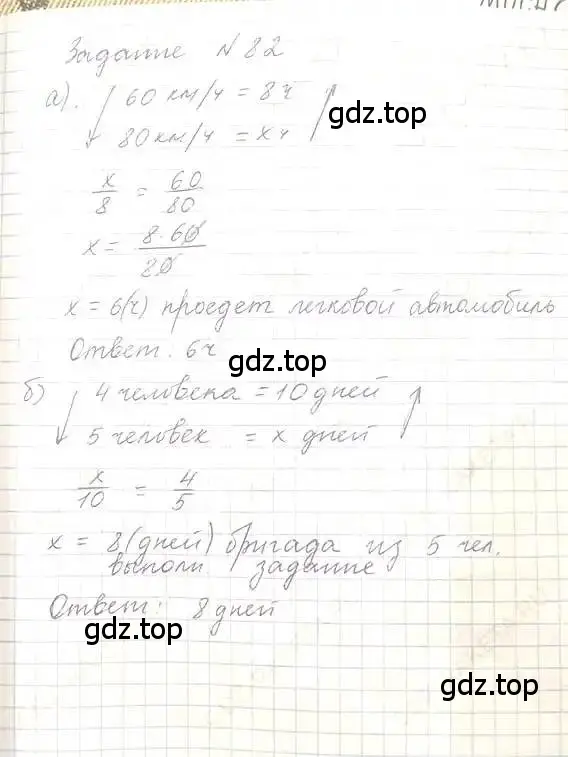 Задание № 82
а). 60 км/ч = 8 ч
80 км/ч = х ч
gdz.top
х/8 = 60/80
х = 8·60/80
х = 6(ч) проедет легковой автомобиль
Ответ. 6ч
gdz.top
б) 4 человека = 10 дней
5 человек = х дней
х/10 = 4/5
х = 8 (дней) бригада из 5 чел.
выполн задание
Ответ: 8 дней
gdz.top
gdz.top